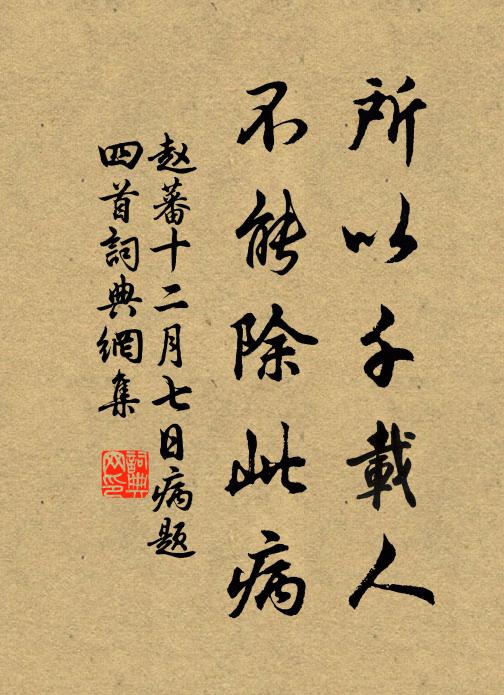 所以千載人
不能除此病
赵蕃十二月七日病题
四首詞典網集
詞典网印